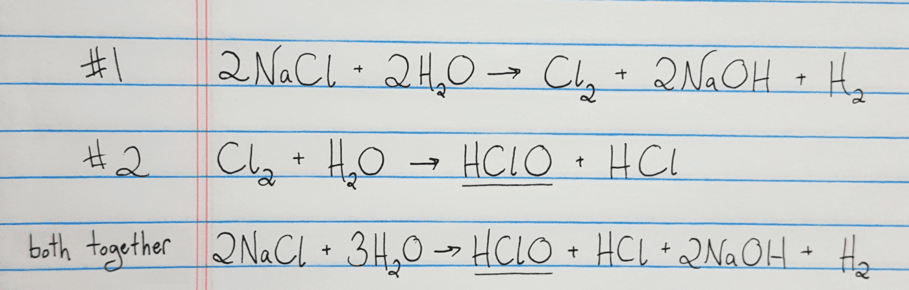 #1 2NaCl + 2H₂O → Cl₂ + 2NaOH + H₂
#2 Cl₂ + H₂O → HClO + HCl
both together 2NaCl + 3H₂O → HClO + HCl + 2NaOH + H₂